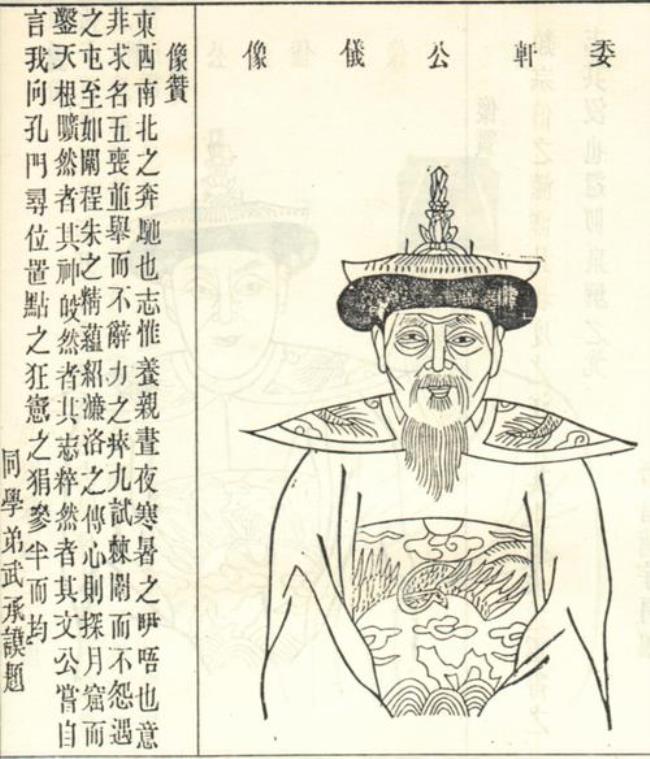 委軒公儀像
像贊
東西南北之奔馳也志惟養親晝夜寒暑之咿唔也意
非求名五喪並舉而不辭力之瘁九試棘闈而不怨遇
之屯至如闡程朱之精蘊紹濂洛之傳心則探月窟而
鑿天根曠然者其神皎然者其志粹然者其文公嘗自
言我向孔門尋位置點之狂憲之狷參半而均
同學弟武承謨題